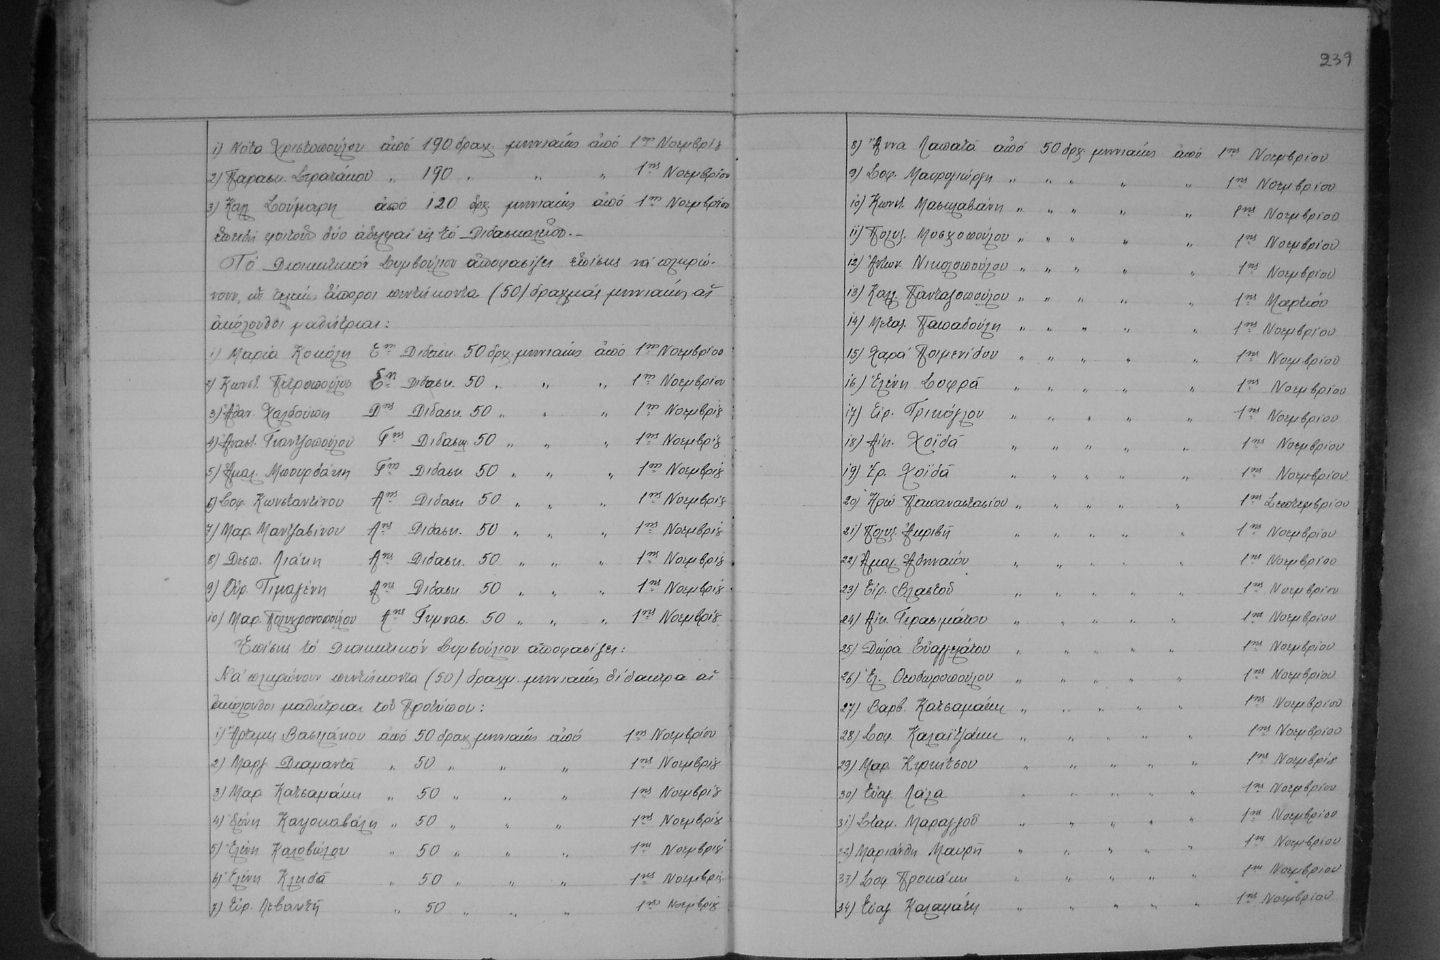 239
1) Νότα Χριστοπούλου ἀπό 190 δραχ μηνιαίως ἀπό 1ης Νοεμβρίȣ
2) Παρασκ. Στρατάκου „ 190 „ „ „ 1ης Νοεμβρίου
3) Καλ. Σούμαρη ἀπό 120 δρχ μηνιαίως ἀπό 1ης Νοεμβρίου
ἐπειδή φοιτοῦν δύο ἀδελφαί εἰς τό Διδασκαλεῖον.-
Τό Διοικητικόν Συμβούλιον ἀποφασίζει ἐπίσης νά πληρώ-
νουν, ὡς τελείως ἄποροι πεντήκοντα (50) δραχμάς μηνιαίως αἱ
ἀκόλουθοι μαθήτριαι:
1) Μαρία Κοκόλη Εης Διδασκ. 50 δρχ. μηνιαίως ἀπό 1ης Νοεμβρίου
2) Κωνστ. Πετροπούλου Εης Διδασκ. 50 „ „ „ 1ης Νοεμβρίου
3) Ἀθαν. Χαλδούπη Δης Διδασκ. 50 „ „ „ 1ης Νοεμβρίȣ
4) Ἀναστ. Γιαντζοπούλου Γης Διδασκ. 50 „ „ „ 1ης Νοεμβρίȣ
5) Ἀμαλ. Μπουρδάκη Γης Διδασκ 50 „ „ „ 1ης Νοεμβρίȣ
6) Σοφ. Κωνσταντίνου Αης Διδασκ 50 „ „ „ 1ης Νοεμβρίȣ
7) Μαρ. Μαντζαβίνου Αης Διδασκ. 50 „ „ „ 1ης Νοεμβρίȣ
8) Δεσπ. Λιάκη Αης Διδασκ. 50 „ „ „ 1ης Νοεμβρίȣ
9) Οὐρ. Τιμαγένη Αης Διδασκ 50 „ „ „ 1ης Νοεμβρίȣ
10) Μαρ. Πολυχρονοπούλου Αης Γυμνασ. 50 „ „ „ 1ης Νοεμβρίȣ
Ἐπίσης τό Διοικητικόν Συμβούλιον ἀποφασίζει:
Νά πληρώνουν πεντήκοντα (50) δραχμ. μηνιαίως δίδακτρα αἱ
ἀκόλουθοι μαθήτριαι τοῦ Προτύπου:
1) Ἄρτεμις Βασιλάκου ἀπό 50 δραχ μηνιαίως ἀπό 1ης Νοεμβρίου
2) Μαργ. Διαμαντᾶ „ 50 „ „ „ 1ης Νοεμβρίȣ
3) Μαρ Κατσαμάκη „ 50 „ „ „ 1ης Νοεμβρίȣ
4) Ἑλένη Καλοκαβάλη „ 50 „ „ „ 1ης Νοεμβρίȣ
5) Ἑλένη Καλοβώλου „ 50 „ „ „ 1ης Νοεμβρίȣ
6) Ἑλένη Κλειδᾶ „ 50 „ „ „ 1ης Νοεμβρίȣ
7) Εὐρ. Λεβαντῆ „ 50 „ „ „ 1ης Νοεμβρίȣ
8) Ἄννα Λαπατᾶ ἀπό 50 δρχ μηνιαίως ἀπό 1ης Νοεμβρίου
9) Σοφ. Μαυρογιώργη „ „ „ „ „ 1ης Νοεμβρίου
10) Κωνστ. Μασκαβάνη „ „ „ „ „ 1ης Νοεμβρίου
11) Πολυξ. Μοσχοπούλου „ „ „ „ „ 1ης Νοεμβρίου
12) Ἀντων. Νικολοπούλου „ „ „ „ „ 1ης Νοεμβρίου
13) Καλ. Πανταζοπούλου „ „ „ „ „ 1ης Μαρτίου
14) Μεταξ. Παπαδούλη „ „ „ „ „ 1ης Νοεμβρίου
15) Χαρά Ποιμενίδου „ „ „ „ „ 1ης Νοεμβρίου
16) Ἑλένη Σοφρᾶ „ „ „ „ „ 1ης Νοεμβρίου
17) Εἰρ. Τρικόγλου „ „ „ „ „ 1ης Νοεμβρίου
18) Αἰκ. Χοϊδᾶ „ „ „ „ „ 1ης Νοεμβρίου
19) Ἐρ. Χοϊδᾶ „ „ „ „ „ 1ης Νοεμβρίου
20) Ἡρώ Παπαναστασίου „ „ „ „ „ 1ης Σεπτεμβρίου
21) Πολυξ. Ἀκριβῆ „ „ „ „ „ 1ης Νοεμβρίου
22) Ἀμαλ Ἀθηναίου „ „ „ „ „ 1ης Νοεμβρίου
23) Εἰρ. Βλαστοῦ „ „ „ „ „ 1ης Νοεμβρίου
24) Αἰκ. Γερασιμάτου „ „ „ „ „ 1ης Νοεμβρίου
25) Δώρα Εὐαγγελάτου „ „ „ „ „ 1ης Νοεμβρίου
26) Ἑλ. Θεοδωροπούλου „ „ „ „ „ 1ης Νοεμβρίου
27) Βαρβ. Κατσαμάκη „ „ „ „ „ 1ης Νοεμβρίου
28) Σοφ. Καλαϊτζάκη „ „ „ „ „ 1ης Νοεμβρίου
29) Μαρ. Κυρκίτσου „ „ „ „ „ 1ης Νοεμβρίȣ
30) Εὐαγ Λάλα „ „ „ „ „ 1ης Νοεμβρίου
31) Σταμ. Μαραγγοῦ „ „ „ „ „ 1ης Νοεμβρίου
32) Μαριάνθη Μαυρῆ „ „ „ „ „ 1ης Νοεμβρίου
33) Σοφ Προκάκη „ „ „ „ „ 1ης Νοεμβρίου
34) Εὐαγ Καλαφάτη „ „ „ „ „ 1ης Νοεμβρίου